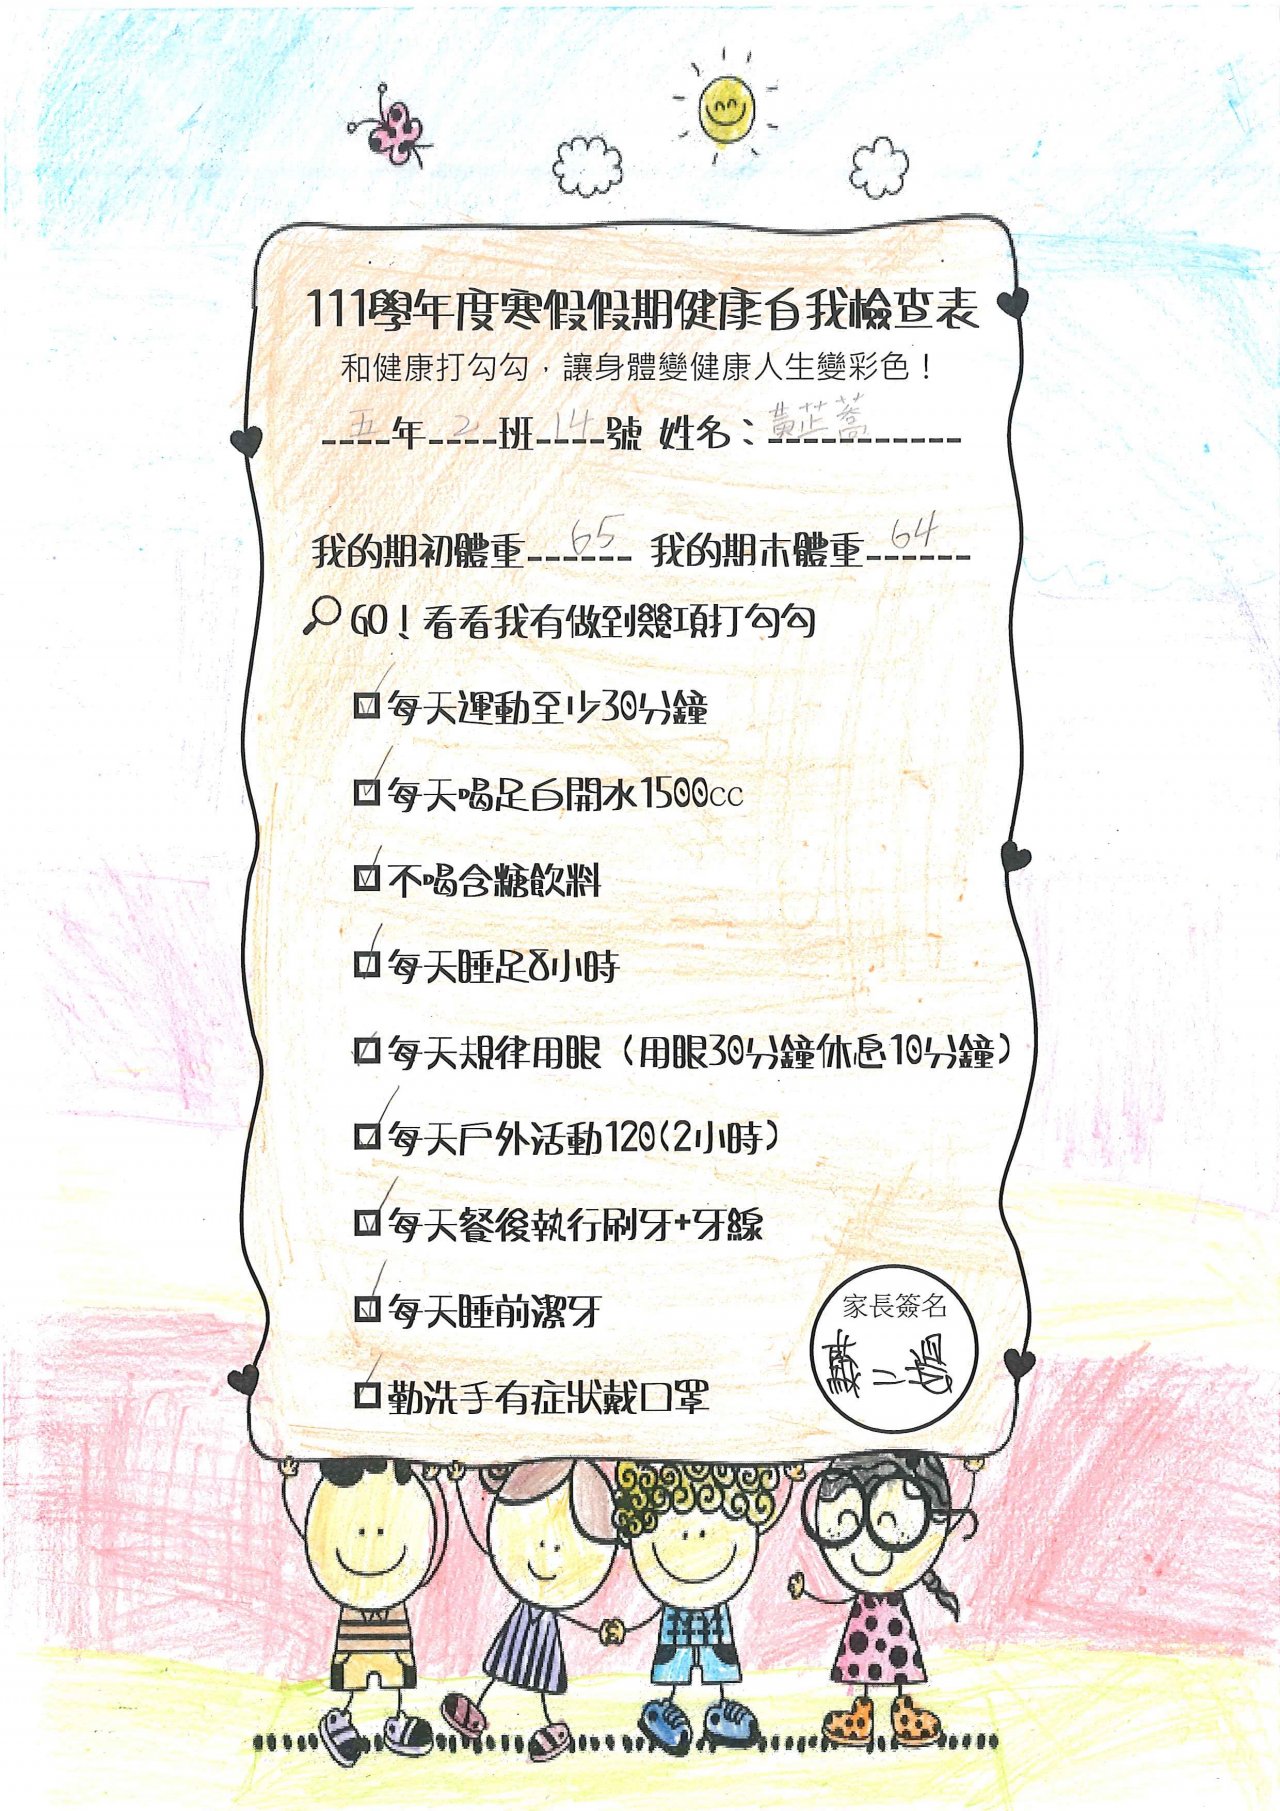 111學年度寒假假期健康自我檢查表
和健康打勾勾，讓身體變健康人生變彩色！
五年2班14號 姓名：黃芷蒿
我的期初體重65 我的期末體重64
GO！看看我有做到幾項打勾勾
☑每天運動至少30分鐘
☑每天喝足白開水1500cc
☑不喝含糖飲料
☑每天睡足8小時
☑每天規律用眼（用眼30分鐘休息10分鐘）
☑每天戶外活動120(2小時)
☑每天餐後執行刷牙+牙線
☑每天睡前潔牙
☑勤洗手有症狀戴口罩
家長簽名